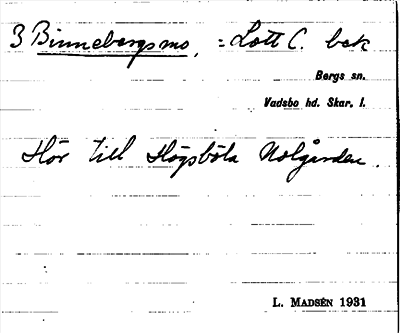 3 Binnebergsmo, = Lott C. bek
Bergs sn.
Vadsbo hd. Skar. l.
Hör till Högsböla Nolgården.
L. MADSÉN 1931